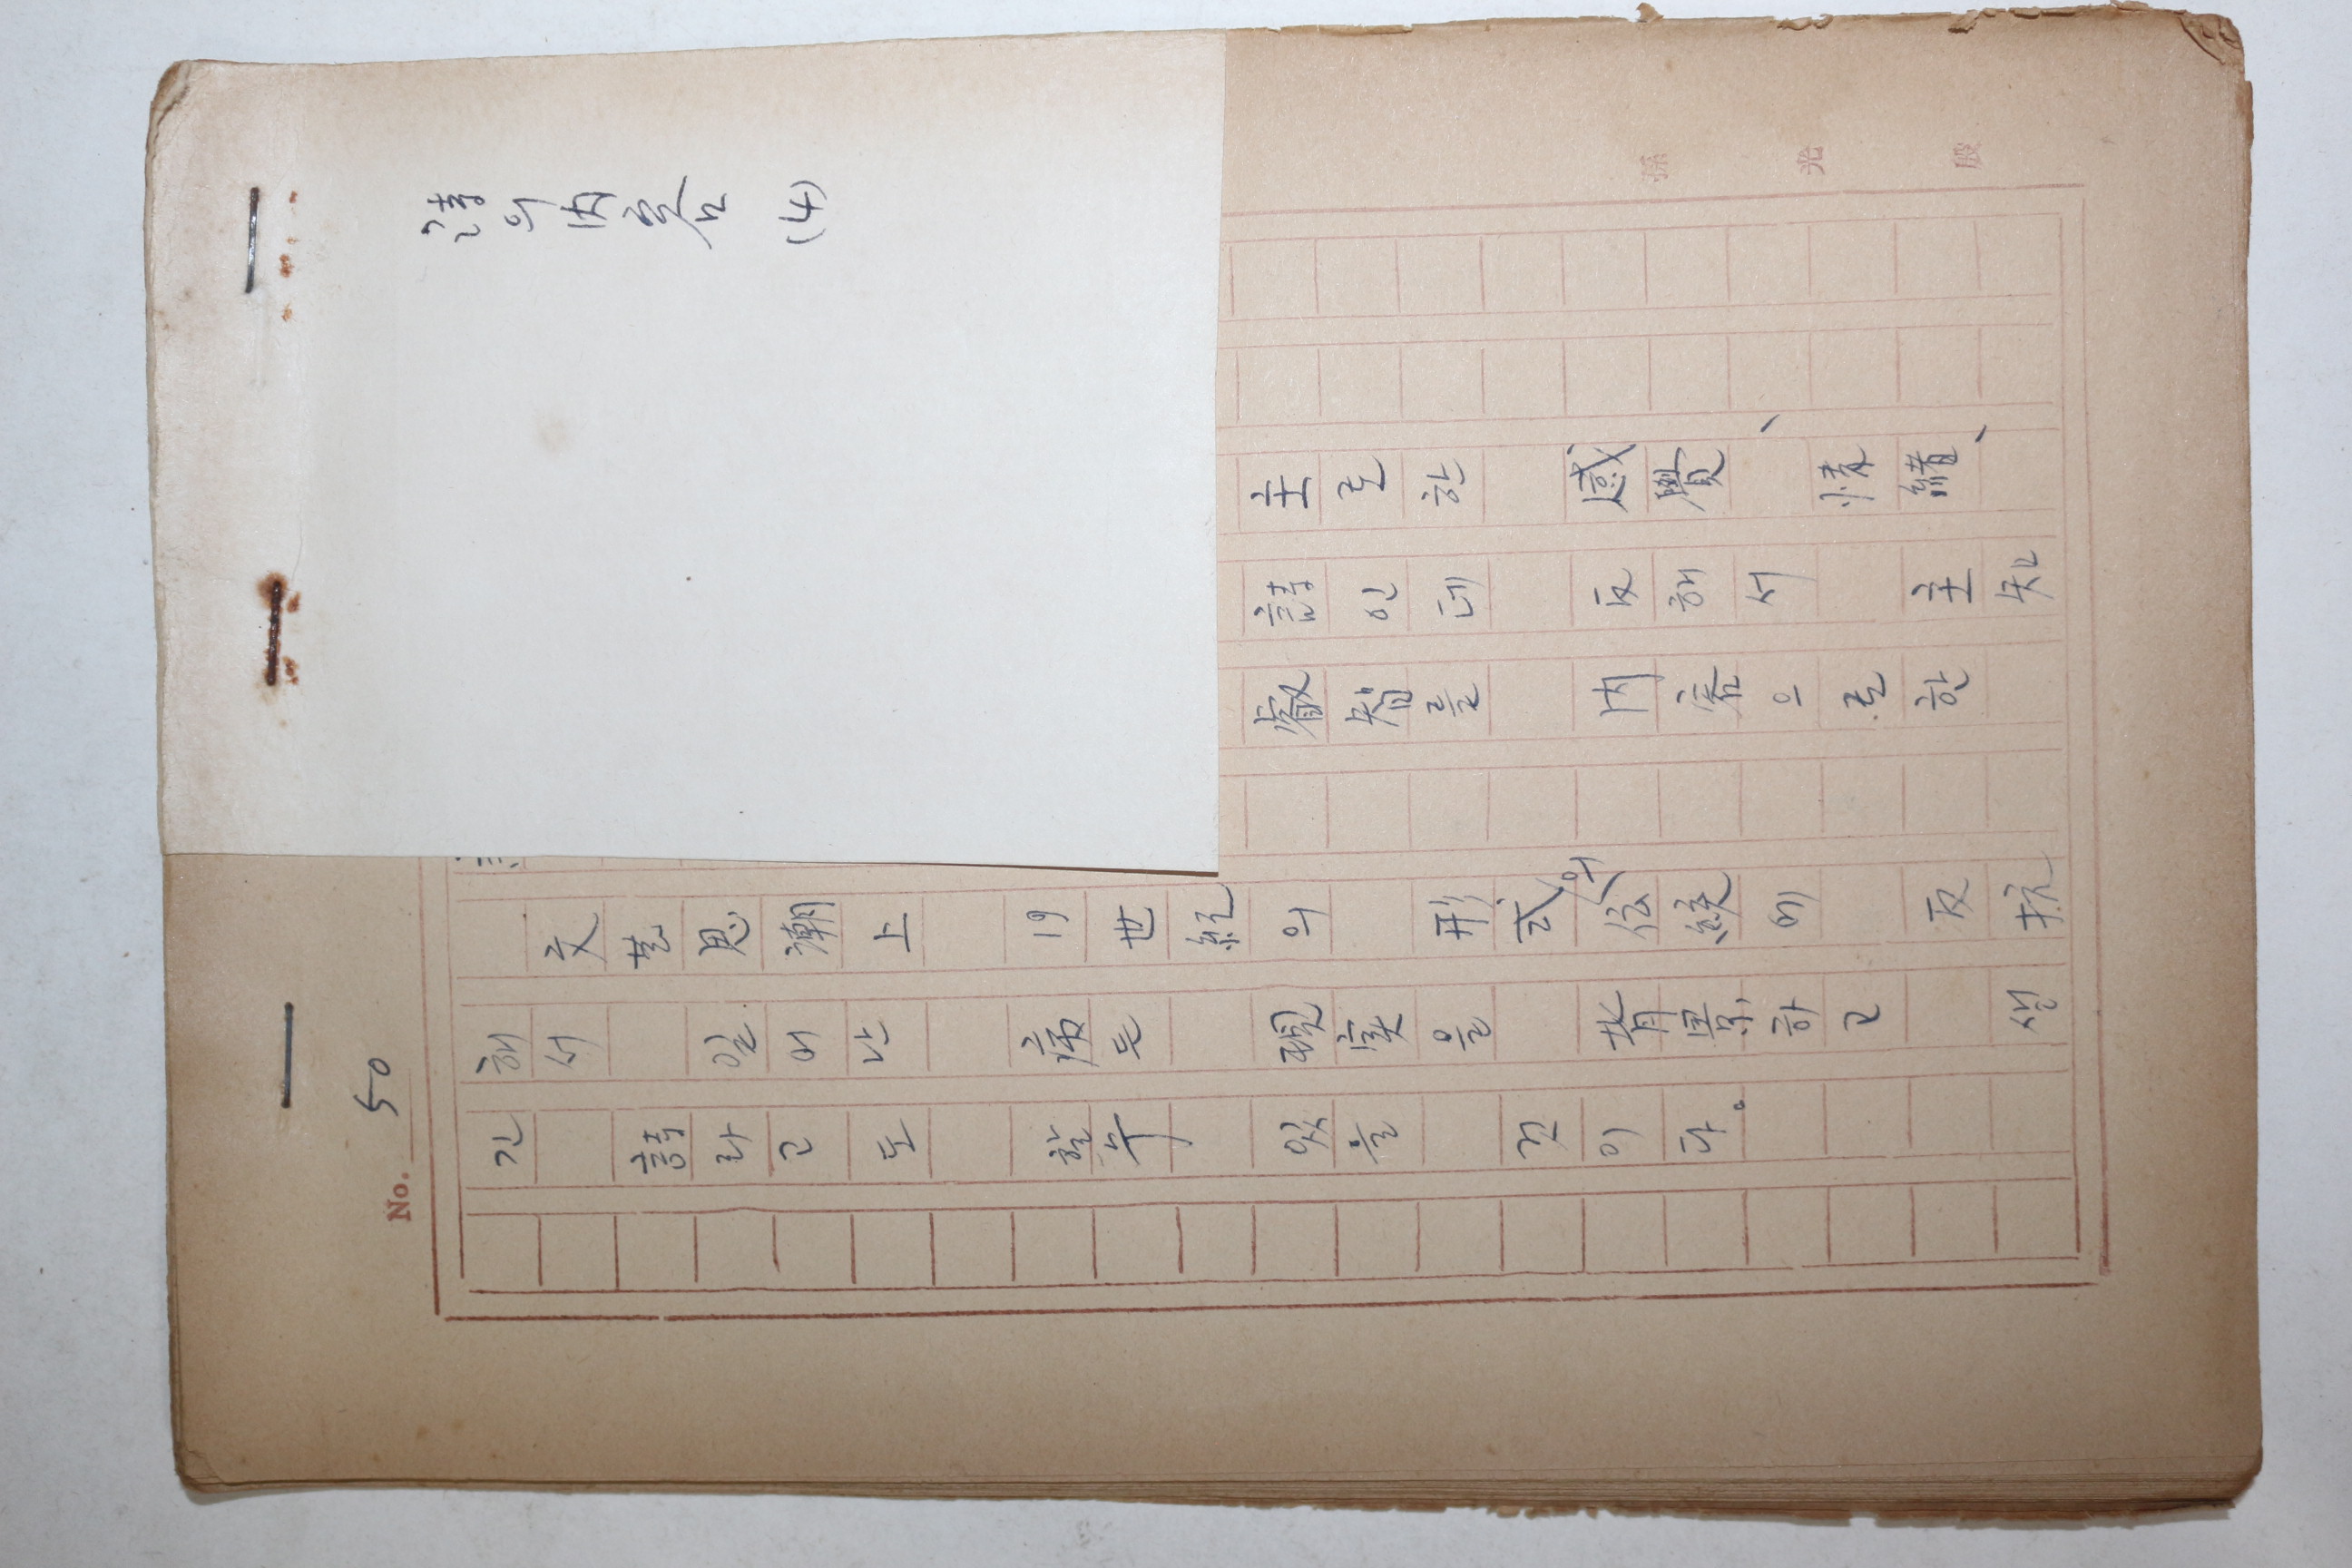 詩의 内容 (4)
No. 50
主로한 感覺、情緖、
詩인데 反해서 主知
叡智를 内容으로한
文芸思潮上 19世紀의 形式의 伝統에 反抗
해서 일어난 病든 現実을 背景하고 생
긴 詩라고도 할수 있을 것이다。
孫光殷